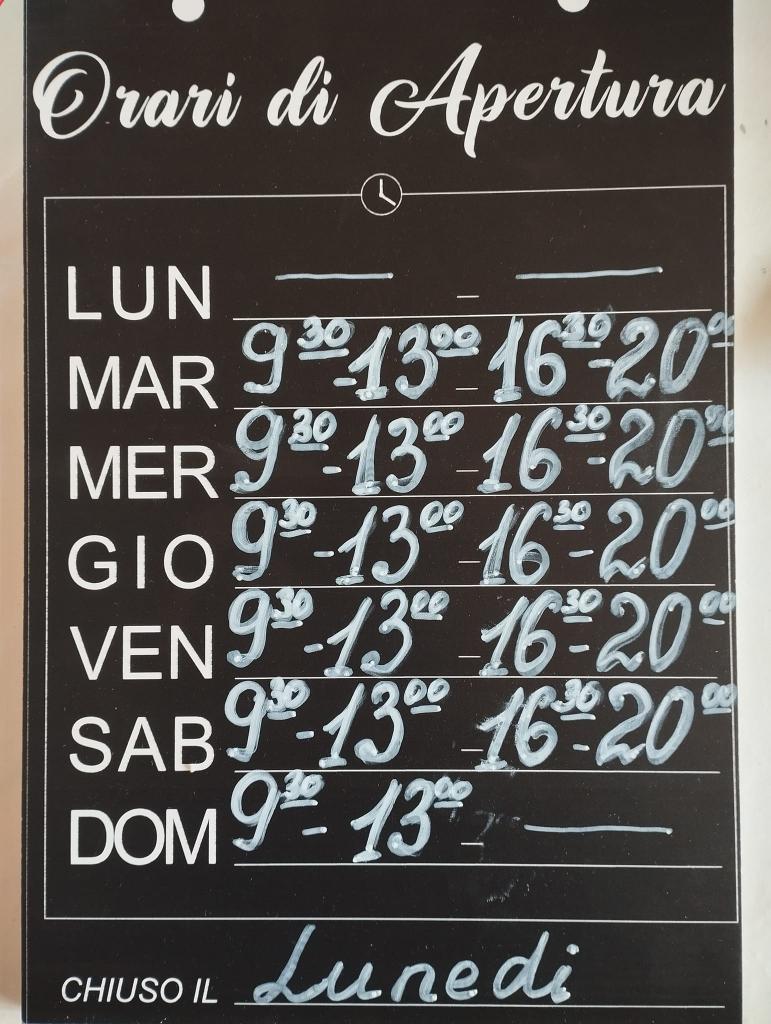 Orari di Apertura
LUN — – —
MAR 9³⁰-13⁰⁰ – 16³⁰-20⁰⁰
MER 9³⁰-13⁰⁰ – 16³⁰-20³⁰
GIO 9³⁰-13⁰⁰ – 16³⁰-20⁰⁰
VEN 9³⁰-13⁰⁰ – 16³⁰-20⁰⁰
SAB 9³⁰-13⁰⁰ – 16³⁰-20⁰⁰
DOM 9³⁰-13⁰⁰ – —
CHIUSO IL Lunedi